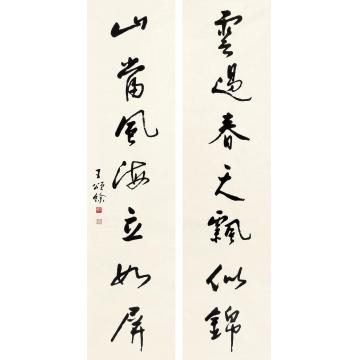 雲過春天飄似錦
山當風海立如屏
王頌餘